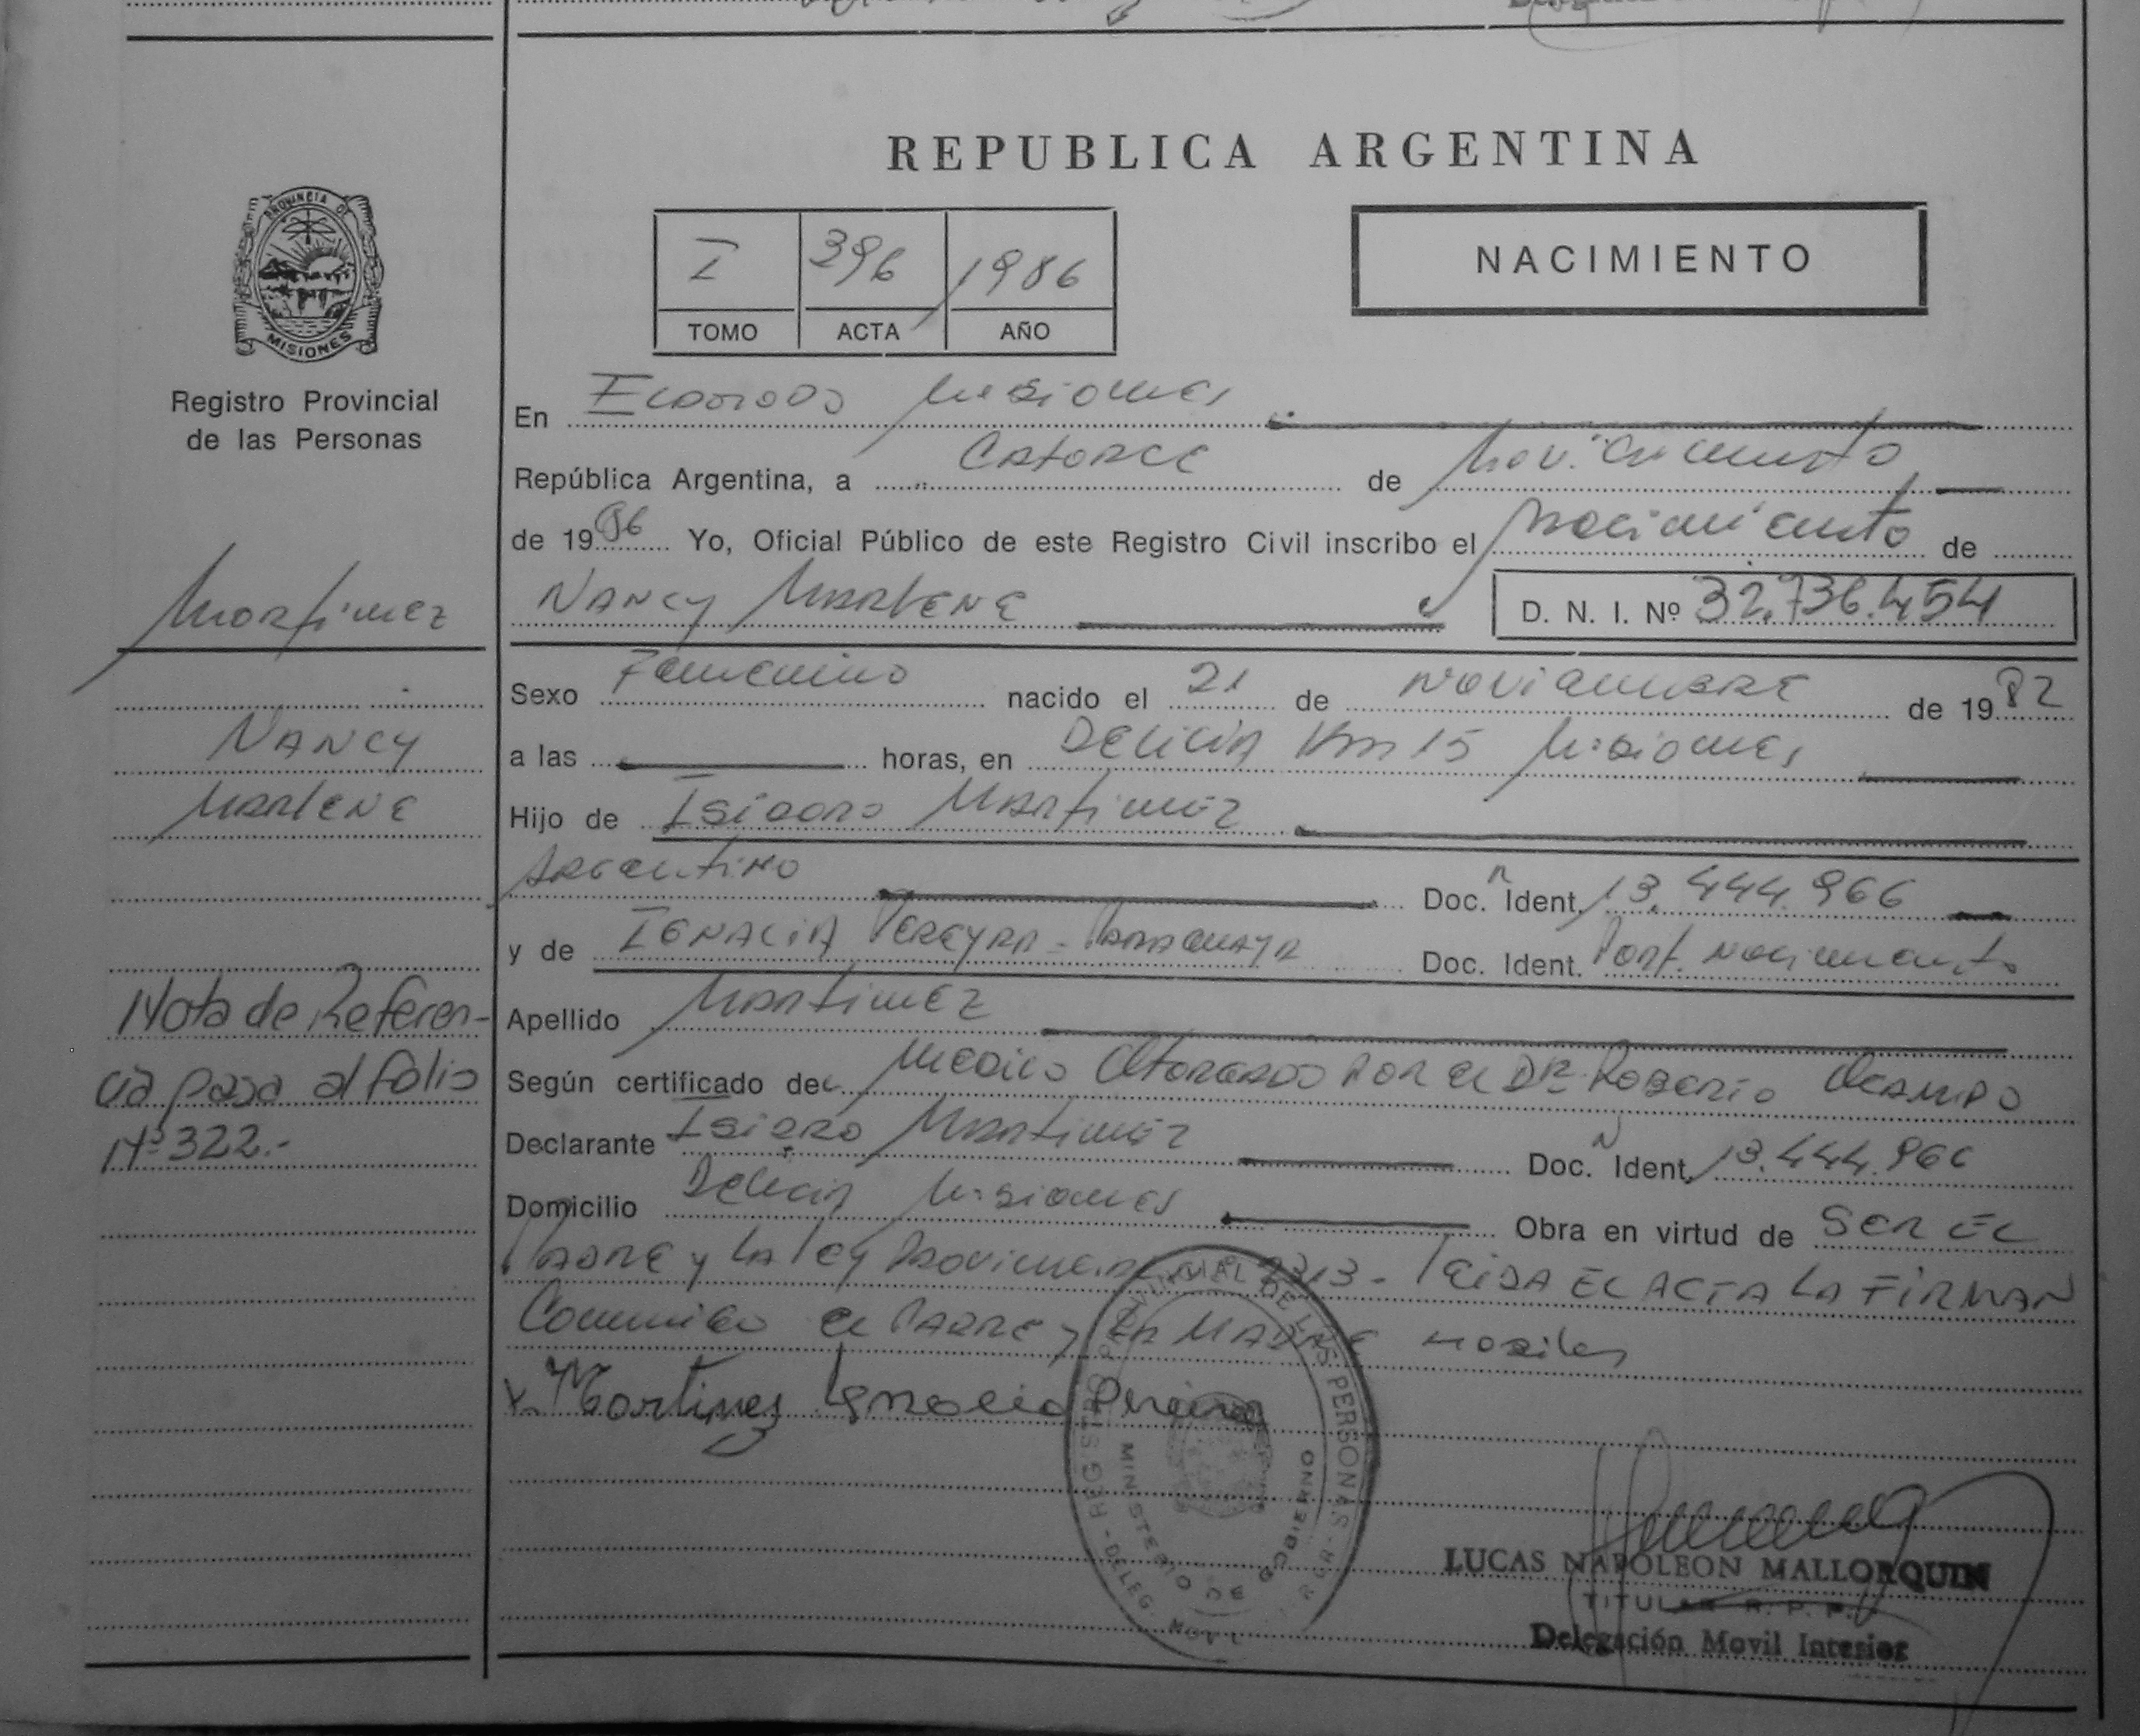 REPUBLICA ARGENTINA
PROVINCIA DE
MISIONES
Registro Provincial
de las Personas
I 396 1986
TOMO ACTA AÑO
NACIMIENTO
En Eldorado Misiones
República Argentina, a Catorce de
de 1986 Yo, Oficial Público de este Registro Civil inscribo el Nacimiento de
NANCY MARLENE D. N. I. Nº 32.736.454
Sexo Femenino nacido el 21 de Noviembre de 1982
a las horas, en Delicia Km 15 Misiones
Hijo de Isidoro Martinez
Argentino Doc. N Ident. 13.444.966
y de IGNACIA PEREYRA - Paraguaya Doc. Ident. Part. Nacimiento
Apellido Martinez
Según certificado de Medico Otorgado por el DR. Rogerio Ocampo
Declarante Isidro Martinez Doc. N Ident. 13.444.966
Domicilio Delicia Misiones Obra en virtud de SER EL
PADRE y LA Ley Provincial - Leida EL ACTA LA FIRMAN
Conmigo el PADRE y LA MADRE
x Martinez Ignacia Pereira
Martinez
NANCY
MARLENE
Nota de Referen-
cia pasa al folio
Nº 322.-
REGISTRO PROVINCIAL DE LAS PERSONAS
MINISTERIO DE GOBIERNO
DELEG. MOVIL
LUCAS NAPOLEON MALLORQUIN
TITULAR R. P. P.
Delegación Movil Interior